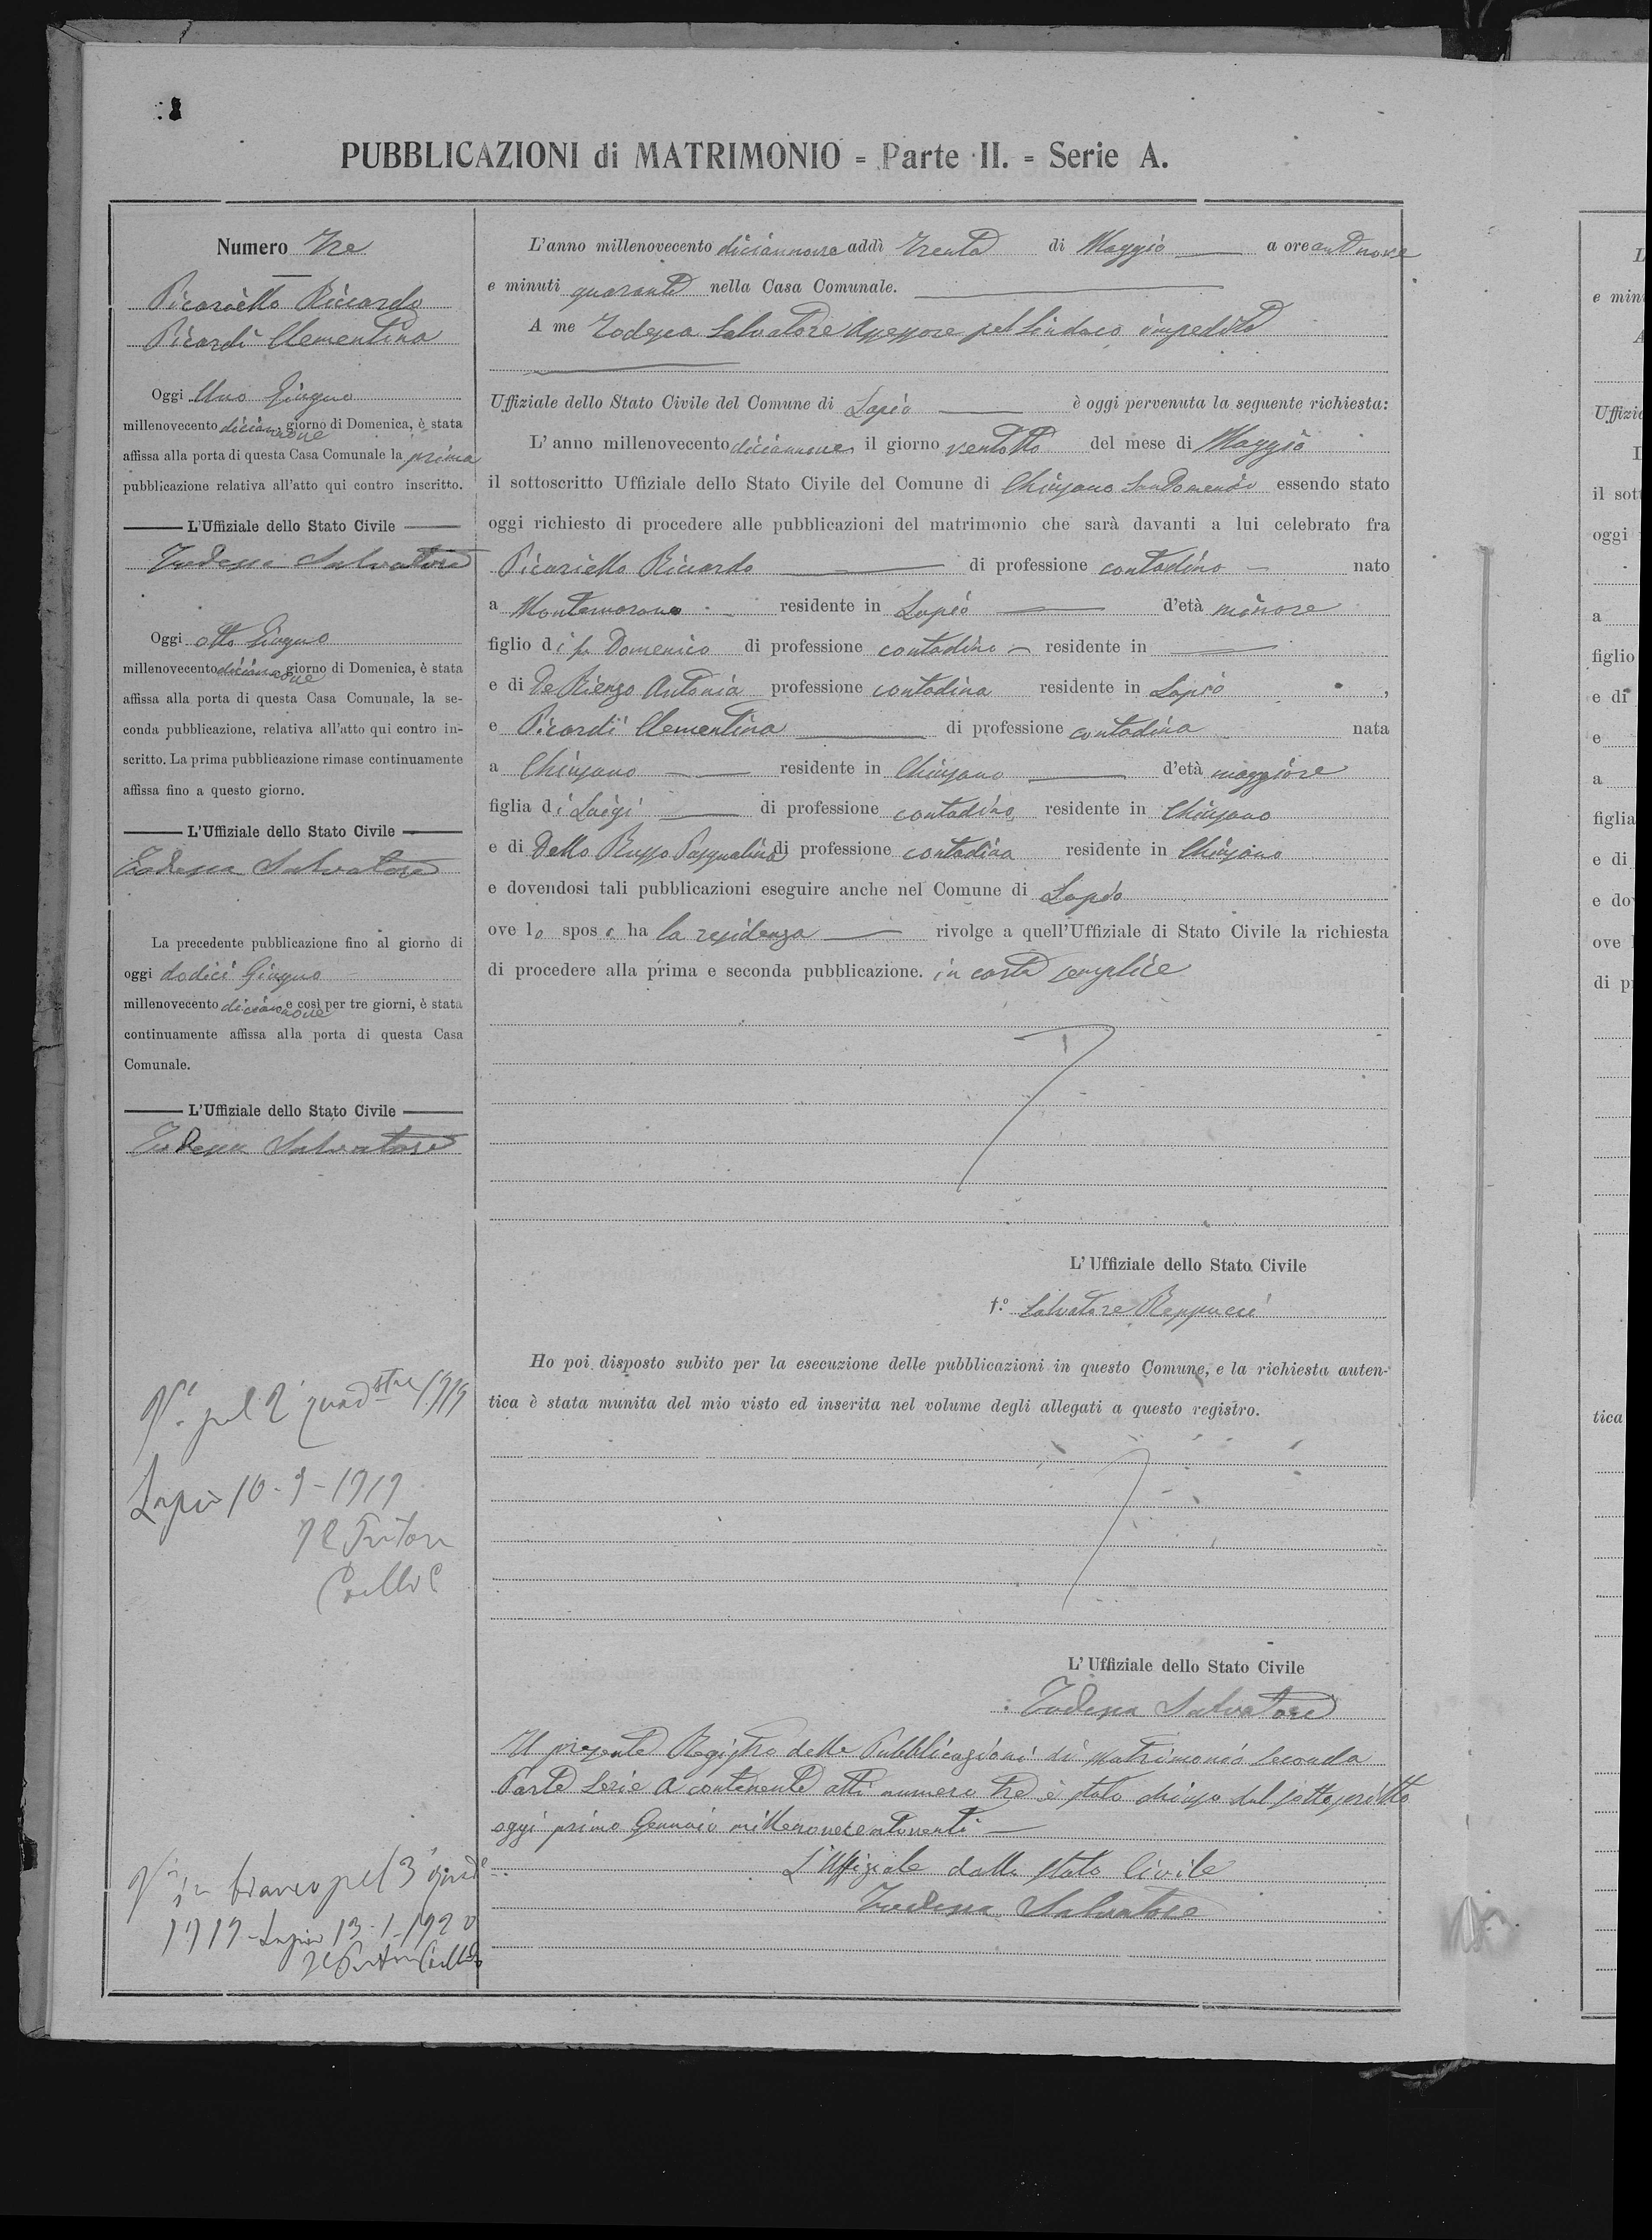 PUBBLICAZIONI di MATRIMONIO = Parte II. = Serie A.
Numero Tre
Picariello Riccardo
Picardi Clementina
Oggi Uno Giugno
millenovecento diciannove giorno di Domenica, è stata
affissa alla porta di questa Casa Comunale la prima
pubblicazione relativa all'atto qui contro inscritto.
L'Uffiziale dello Stato Civile
Todesca Salvatore
Oggi otto Giugno
millenovecento diciannove giorno di Domenica, è stata
affissa alla porta di questa Casa Comunale, la se-
conda pubblicazione, relativa all'atto qui contro in-
scritto. La prima pubblicazione rimase continuamente
affissa fino a questo giorno.
L'Uffiziale dello Stato Civile
Todesca Salvatore
La precedente pubblicazione fino al giorno di
oggi dodici Giugno
millenovecento diciannove e così per tre giorni, è stata
continuamente affissa alla porta di questa Casa
Comunale.
L'Uffiziale dello Stato Civile
Todesca Salvatore
V° pel 2° quadstre 1919
Lapio 10-9-1919
Il Pretore
V° in bianco pel 3° quade
1919 - Lapio 13-1-1920
Il Pretore
L'anno millenovecento diciannove addì trenta di Maggio a ore ant nove
e minuti quaranta nella Casa Comunale.
A me Todesca Salvatore Assessore pel Sindaco impedito
Uffiziale dello Stato Civile del Comune di Lapio è oggi pervenuta la seguente richiesta:
L'anno millenovecento diciannove il giorno ventotto del mese di Maggio
il sottoscritto Uffiziale dello Stato Civile del Comune di Chiusano San Domenico essendo stato
oggi richiesto di procedere alle pubblicazioni del matrimonio che sarà davanti a lui celebrato fra
Picariello Riccardo di professione contadino nato
a Montemarano residente in Lapio d'età minore
figlio di fu Domenico di professione contadino residente in
e di De Rienzo Antonia professione contadina residente in Lapio,
e Picardi Clementina di professione contadina nata
a Chiusano residente in Chiusano d'età maggiore
figlia di Luigi di professione contadino residente in Chiusano
e di Dello Russo Pasqualina di professione contadina residente in Chiusano
e dovendosi tali pubblicazioni eseguire anche nel Comune di Lapio
ove lo sposo ha la residenza rivolge a quell'Uffiziale di Stato Civile la richiesta
di procedere alla prima e seconda pubblicazione. in carta semplice
L'Uffiziale dello Stato Civile
f.° Salvatore Reppucci
Ho poi disposto subito per la esecuzione delle pubblicazioni in questo Comune, e la richiesta auten-
tica è stata munita del mio visto ed inserita nel volume degli allegati a questo registro.
L'Uffiziale dello Stato Civile
Todesca Salvatore
Il presente Registro delle Pubblicazioni di Matrimonio seconda
Parte Serie A contenente atti numero tre è stato chiuso dal sottoscritto
oggi primo Gennaio millenovecentoventi
L'Uffiziale dello Stato Civile
Todesca Salvatore
L
e min
A
Uffizi
I
il sott
oggi
a
figlio
e di
e
a
figlia
e di
e do
ove
di p
tica